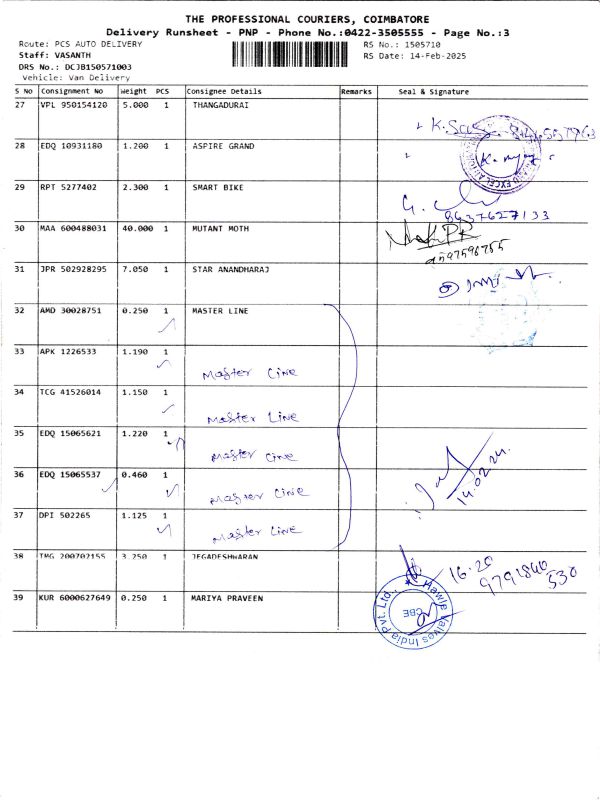 THE PROFESSIONAL COURIERS, COIMBATORE
Delivery Runsheet - PNP - Phone No.:0422-3505555 - Page No.:3
Route: PCS AUTO DELIVERY
RS No.: 1505710
Staff: VASANTH
RS Date: 14-Feb-2025
DRS No.: DCJB150571003
Vehicle: Van Delivery
S No Consignment No Weight PCS Consignee Details Remarks Seal & Signature
27 VPL 950154120 5.000 1 THANGADURAI
28 EDQ 10931180 1.200 1 ASPIRE GRAND
29 RPT 5277402 2.300 1 SMART BIKE
8637627133
30 MAA 600488031 40.000 1 MUTANT MOTH
9597598755
31 JPR 502928295 7.050 1 STAR ANANDHARAJ
32 AMD 30028751 0.250 1 MASTER LINE
33 APK 1226533 1.190 1
Master Line
34 TCG 41526014 1.150 1
Master Line
35 EDQ 15065621 1.220 1
Master Line
36 EDQ 15065537 0.460 1
Master Line
37 DPI 502265 1.125 1
Master Line
38 TMG 200702155 3.250 1 JEGADESHWARAN
16-20
9791860
530
39 KUR 6000627649 0.250 1 MARIYA PRAVEEN
Hawle Valves India Pvt. Ltd.,
CBE